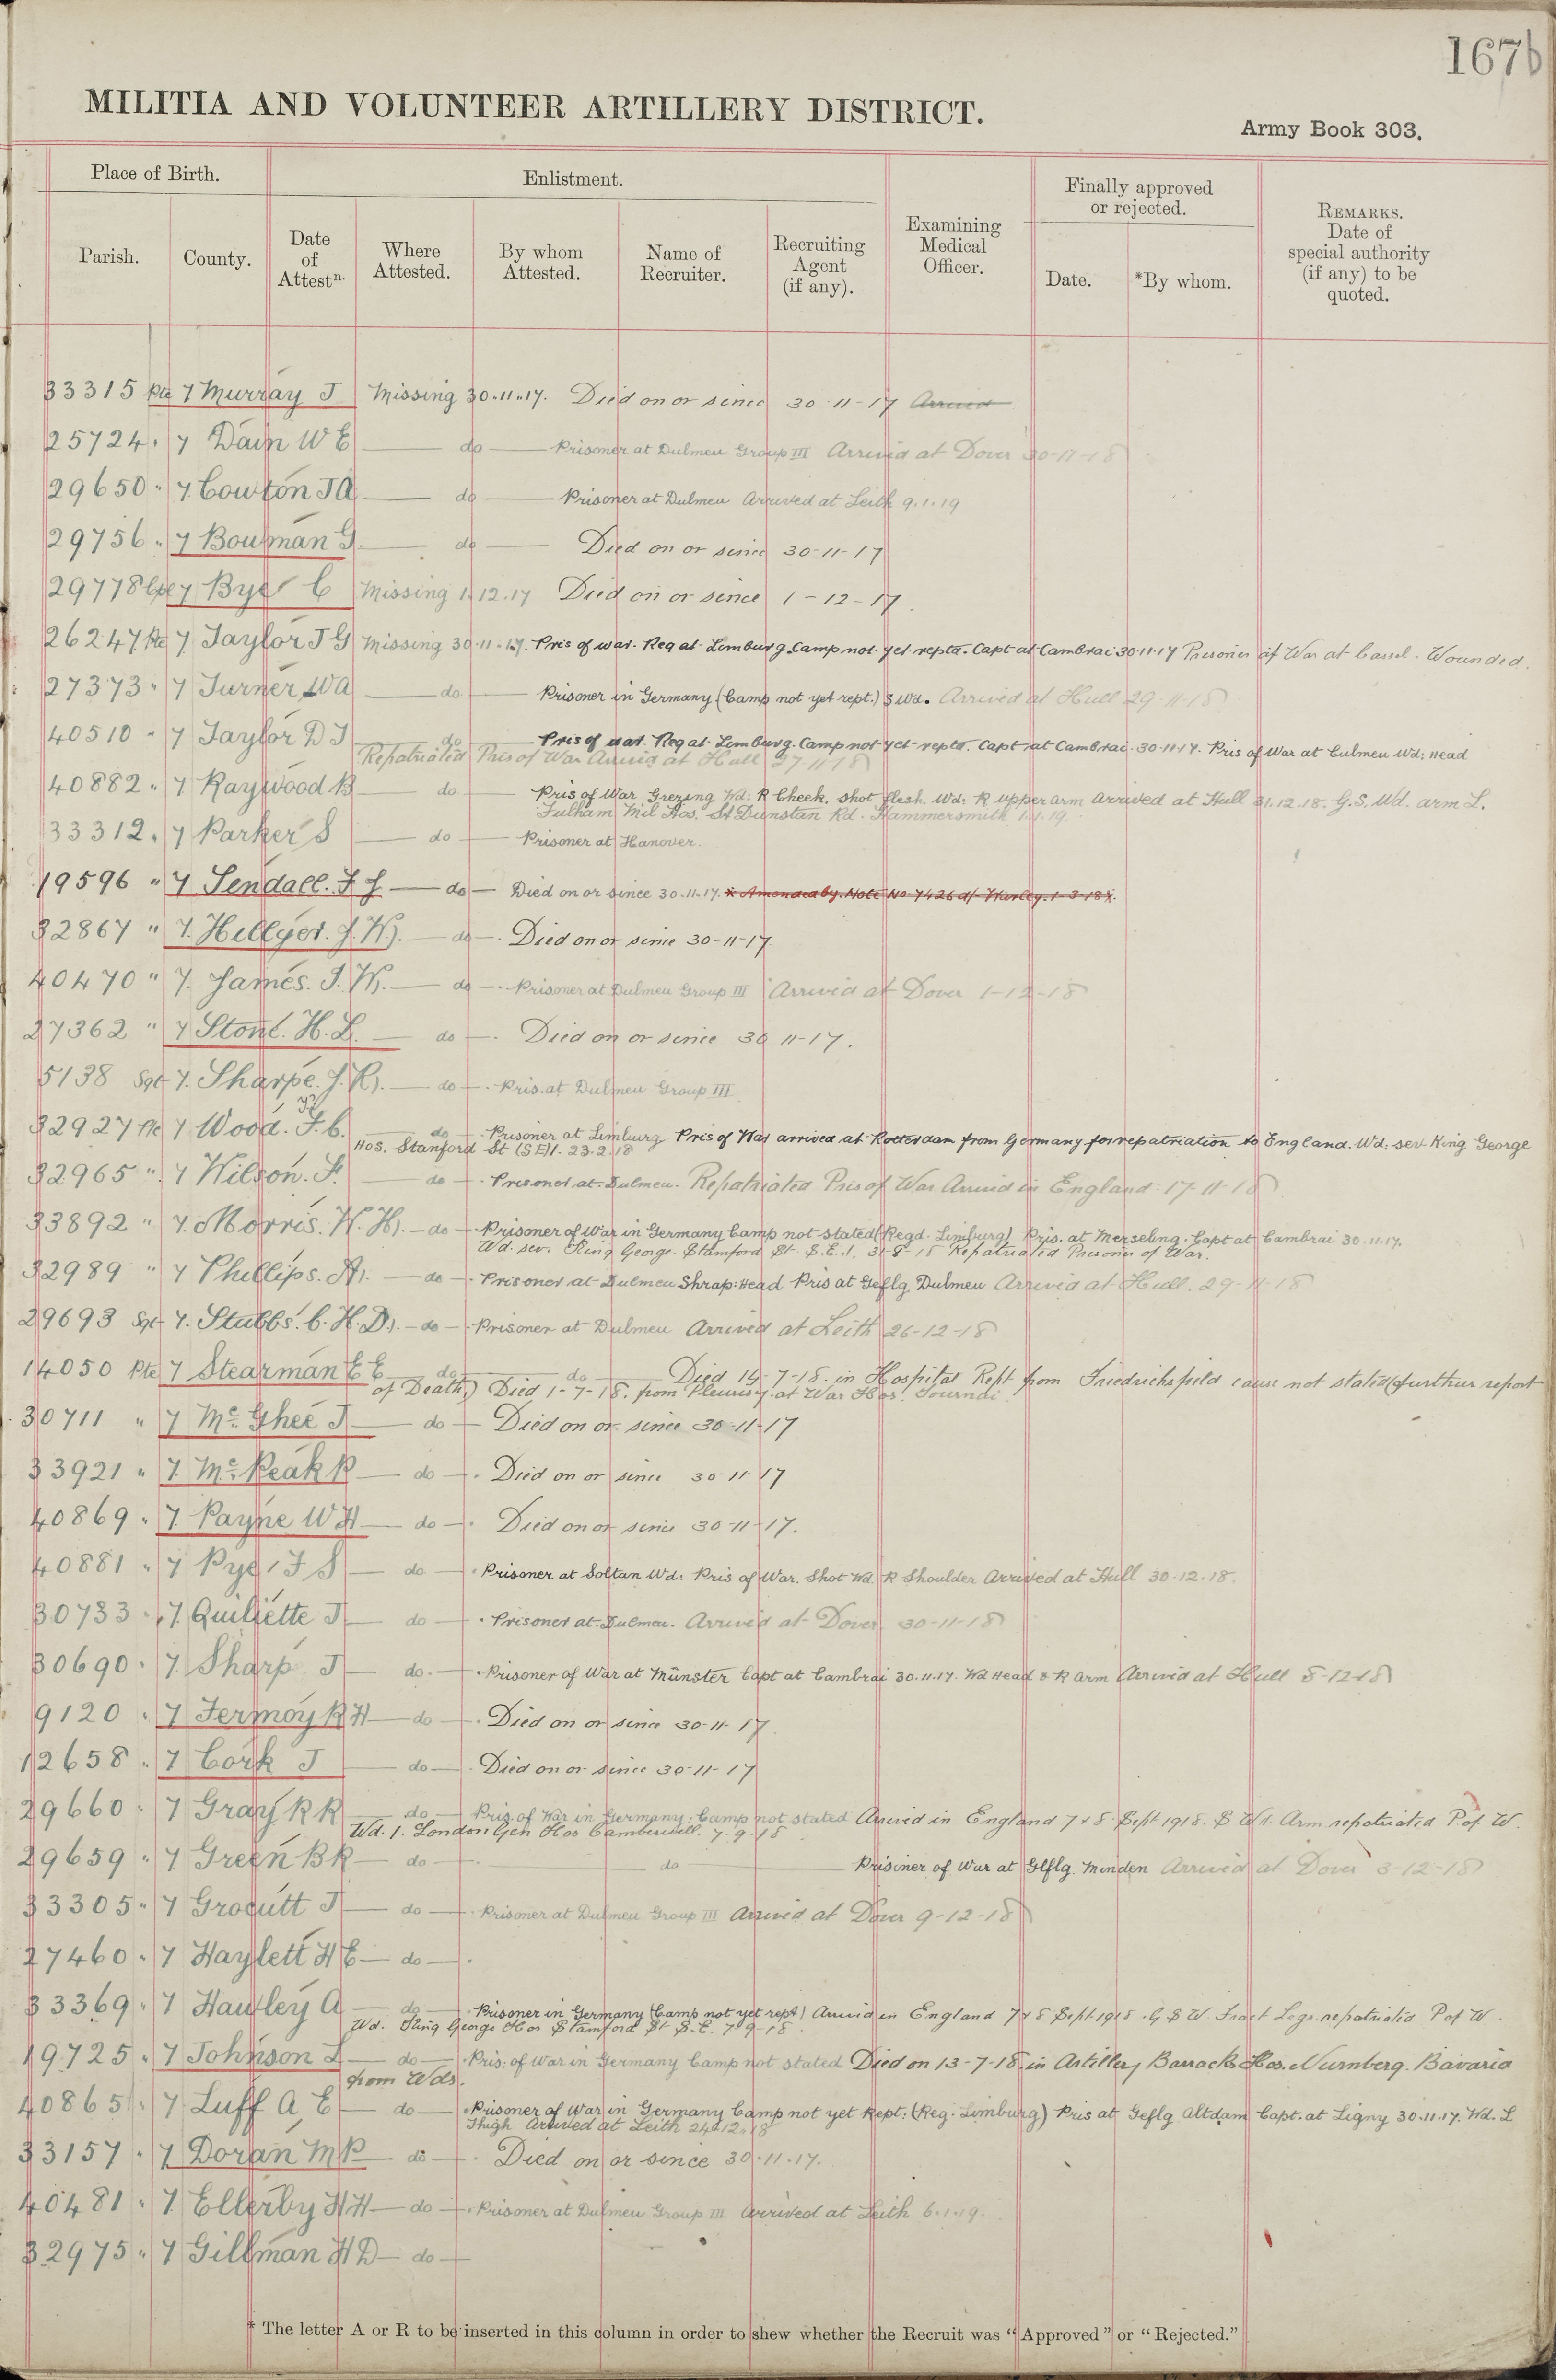 167b
MILITIA AND VOLUNTEER ARTILLERY DISTRICT.
Army Book 303.
Place of Birth.
Enlistment.
Finally approved or rejected.
REMARKS. Date of special authority (if any) to be quoted.
Parish.
County.
Date of Attestn.
Where Attested.
By whom Attested.
Name of Recruiter.
Recruiting Agent (if any).
Examining Medical Officer.
Date.
*By whom.
33315 Pte 7 Murray J Missing 30.11.17. Died on or since 30-11-17
25724 " 7 Dain W E do Prisoner at Dulmen Group III Arrived at Dover 30-11-18
29650 " 7 Cowton J A do Prisoner at Dulmen Arrived at Leith 9.1.19
29756 " 7 Bowman G. do Died on or since 30-11-17
29778 7 Bye C Missing 1.12.17 Died on or since 1-12-17.
26247 Pte 7 Taylor J G Missing 30.11.17. Pris of war. Reg at Limburg Camp not yet reptd. Capt at Cambrai 30.11.17 Prisoner of War at Cassel. Wounded.
27373 " 7 Turner W A do Prisoner in Germany (Camp not yet rept.) S Wd. Arrived at Hull 29-11-18
40510 " 7 Taylor D J do Pris of war. Reg at Limburg. Camp not yet reptd. Capt at Cambrai 30-11-17. Pris of War at Dulmen Wd: Head
Repatriated Pris of War Arrived at Hull 27 11 18
40882 " 7 Raywood B do Pris of War Wd: R Cheek. Shot flesh Wd: R upper arm Arrived at Hull 31.12.18. G.S. Wd. arm L.
Fulham Mil Hos. St Dunstan Rd. Hammersmith 1.1.19.
33312 " 7 Parker S do Prisoner at Hanover.
19596 " 7 Sendall. F J. do Died on or since 30.11.17. x Amended by Note No 7426 d/ Warley. 1-3-18 x.
32867 " 7. Hellyer. J. W. do Died on or since 30-11-17.
40470 " 7. James. J. W. do Prisoner at Dulmen Group III Arrived at Dover 1-12-18
27362 " 7 Stone. H. L. do Died on or since 30 11-17.
5138 Sgt 7. Sharpe. J. R. do Pris. at Dulmen Group III
32927 Pte 7 Wood. F. C. do Prisoner at Limburg Pris of War arrived at Rotterdam from Germany for repatriation to England. Wd: sev. King George
Hos. Stanford St (SE)1. 23.2.18
32965 " 7 Wilson. F. do Prisoner at Dulmen. Repatriated Pris of War Arrived in England. 17-11-18
33892 " 7. Morris. W. H. do Prisoner of War in Germany Camp not stated (Regd. Limburg) Pris. at Merseburg. Capt at Cambrai 30.11.17.
Wd. sev. King George Stamford St. S.E.1. 31-8-18 Repatriated Prisoner of War.
32989 " 7 Phillips. A. do Prisoner at Dulmen Shrap: Head Pris at Geflg Dulmen Arrived at Hull. 29-11-18
29693 Sgt 7. Stubbs. C. H. D. do Prisoner at Dulmen Arrived at Leith 26-12-18
14050 Pte 7 Stearman E E do do Died 14-7-18. in Hospital Rept from Friedrichsfield cause not stated (furthur report
of Death) Died 1-7-18. from Pleurisy at War Hos. Tournai
30711 " 7 McGhee J do Died on or since 30-11-17
33921 " 7 McPeak P do Died on or since 30-11-17
40869 " 7 Payne W H do Died on or since 30-11-17.
40881 " 7 Pye F S do Prisoner at Soltau Wd: Pris of War. Shot Wd. R Shoulder Arrived at Hull 30.12.18.
30733 " 7 Quiliette J do Prisoner at Dulmen. Arrived at Dover. 30-11-18
30690 " 7 Sharp J do. Prisoner of War at Münster Capt at Cambrai 30.11.17. Wd Head & R Arm Arrived at Hull 8-12-18
9120 " 7 Fermoy R H do Died on or since 30-11-17
12658 " 7 Cork J do Died on or since 30-11-17
29660 " 7 Gray R R do Pris. of War in Germany. Camp not stated Arrived in England 7 & 8 Sept 1918. S Wd. Arm repatriated P of W.
Wd. 1. London Gen Hos Camberwell. 7.9.18
29659 " 7 Green B R do do Prisiner of War at Geflg Minden Arrived at Dover 3-12-18
33305 " 7 Grocutt J do Prisoner at Dulmen Group III Arrived at Dover 9-12-18
27460 " 7 Haylett H E do
33369 " 7 Hawley A do Prisoner in Germany (Camp not yet rept) Arrived in England 7 & 8 Sept. 1918. G S W. Fract Legs. repatriated P of W.
Wd. King George Hos Stamford St S.E. 7-9-18.
19725 " 7 Johnson L do Pris: of War in Germany Camp not stated Died on 13-7-18. in Artillery Barracks Hos. Nurnberg. Bavaria
from Wds.
40865 " 7 Luff A E do Prisoner of War in Germany Camp not yet Rept: (Reg: Limburg) Pris at Geflg Altdam Capt. at Ligny 30.11.17. Wd. L
Thigh Arrived at Leith 24.12.18
33157 " 7 Doran M P do Died on or since 30.11.17.
40481 " 7 Ellerby H H do Prisoner at Dulmen Group III Arrived at Leith 6.1.19.
32975 " 7 Gillman H D do
* The letter A or R to be inserted in this column in order to shew whether the Recruit was "Approved" or "Rejected."